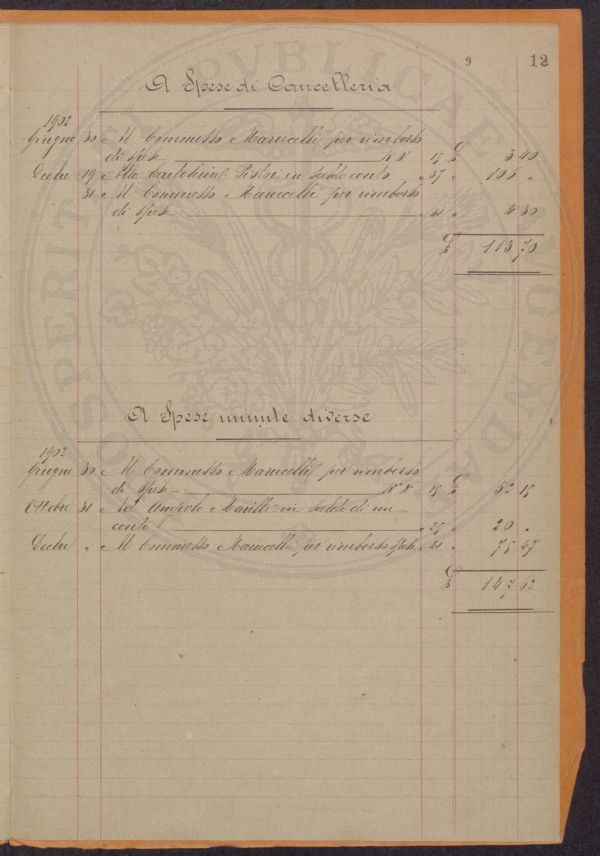 9 12
A Spese di Cancelleria
1902
Giugno 30 Al Commesso Marucelli per rimborso
di spese N° 15 £ 3 40
Dicbre 19 Alla Cartoleria in saldo conto " 37 " 106 "
31 Al Commesso Marucelli per rimborso
di spese " 41 " 4 30
£ 113,70
A Spese minute diverse
1902
Giugno 30 Al Commesso Marucelli per rimborso
di spese N° 15 £ 52 15
Ottobre 31 Ad Angiolo in saldo di un
conto " 25 " 20 "
Dicbre " Al Commesso Marucelli per rimborso spese " 41 " 75 47
£ 147,62